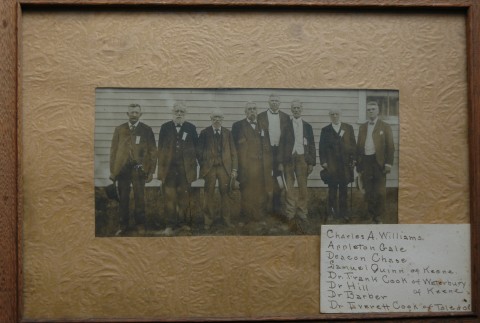 Charles A. Williams
Appleton Gale
Deacon Chase
Samuel Quinn of Keene
Dr. Frank Cook of Waterbury
Dr Hill of Keene
Dr Barber
Dr Everett Cook of Toledo